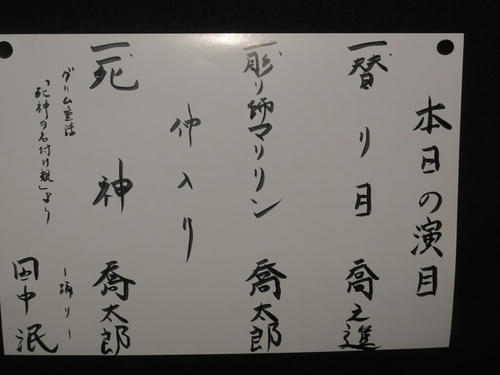 本日の演目
一替り目 喬之進
一彫り師マリリン 喬太郎
仲入り
一死神 喬太郎
グリム童話
「死神の名付け親」より
ー踊りー
田中泯